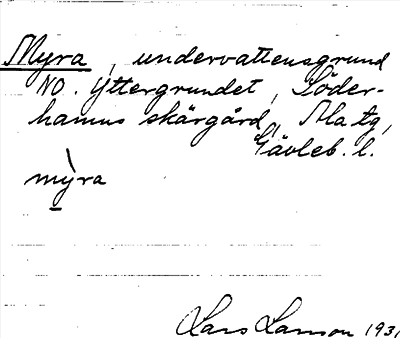 Myra, undervattensgrund
NO. Yttergrundet, Söder-
hamns skärgård, Ala tg,
Gävleb. l.
mỳra
Lars Larsson 1931